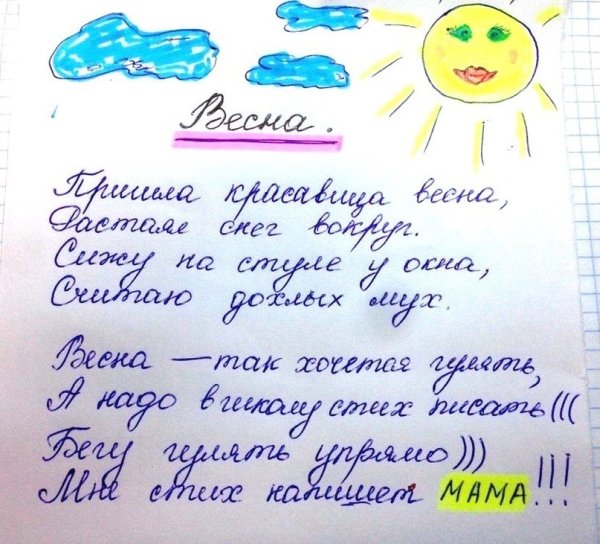 Весна.
Пришла красавица весна,
Растаял снег вокруг.
Сижу на стуле у окна,
Считаю дохлых мух.
Весна — так хочется гулять,
А надо в школу стих писать(((
Бегу гулять упрямо)))
Мне стих напишет МАМА!!!